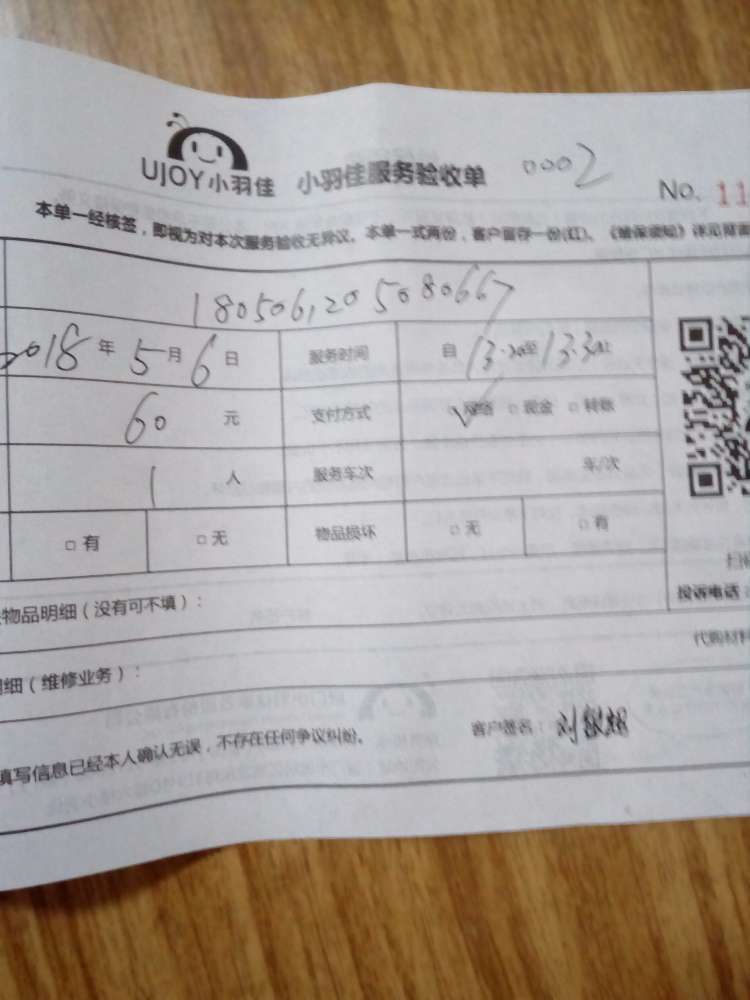 UJOY小羽佳 小羽佳服务验收单 0002 No. 11
本单一经核签，即视为对本次服务验收无异议。本单一式两份，客户留存一份(红)。
180506120508066
2018年5月6日 服务时间 自 至
60元 支付方式 □网络 □现金 □转账
1人 服务车次 车/次
□有 □无 物品损坏 □无 □有
物品明细（没有可不填）：
投诉电话
细（维修业务）： 代购材料
填写信息已经本人确认无误，不存在任何争议纠纷。 客户签名：刘